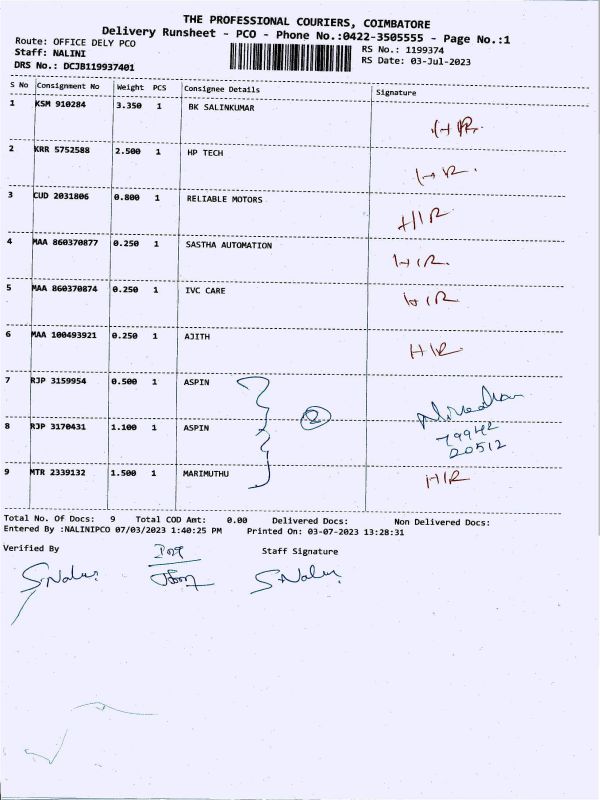 THE PROFESSIONAL COURIERS, COIMBATORE
Delivery Runsheet - PCO - Phone No.:0422-3505555 - Page No.:1
Route: OFFICE DELY PCO
RS No.: 1199374
Staff: NALINI
RS Date: 03-Jul-2023
DRS No.: DCJB119937401
S No Consignment No Weight PCS Consignee Details Signature
1 KSM 910284 3.350 1 BK SALINKUMAR
2 KRR 5752588 2.500 1 HP TECH
3 CUD 2031806 0.800 1 RELIABLE MOTORS
4 MAA 860370877 0.250 1 SASTHA AUTOMATION
5 MAA 860370874 0.250 1 IVC CARE
6 MAA 100493921 0.250 1 AJITH
H1R
7 RJP 3159954 0.500 1 ASPIN
2
8 RJP 3170431 1.100 1 ASPIN
79942
20512
9 MTR 2339132 1.500 1 MARIMUTHU
H1R
Total No. Of Docs: 9 Total COD Amt: 0.00 Delivered Docs: Non Delivered Docs:
Entered By :NALINIPCO 07/03/2023 1:40:25 PM Printed On: 03-07-2023 13:28:31
Verified By Staff Signature
S.Nalini S.Nalini